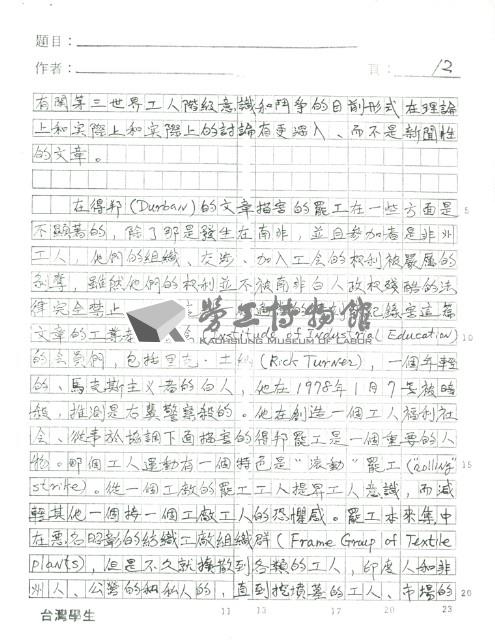 題目：
作者：
頁： 12
有關第三世界工人階級意識和鬥爭的目前形式在理論
上和实際上和实際上的討論有更深入、而不是新聞性
的文章。
在得邦(Durban)的文章描寫的罷工在一些方面是
不顯著的，除了那是發生在南非，並且参加者是非州
工人，他們的組織、交涉、加入工会的权利被嚴厲的
剝奪，雖然他們的权利並不被南非白人政权残酷的法
律完全禁止
勞工博物館
KAOHSIUNG MUSEUM OF LABOR
文章的工業 (Institute of Industrial Education) 10
的会員們，包括里克·土 (Rick Turner)，一個年輕
的、馬克斯主义者的白人，他在1978年1月7号被暗
殺，推測是右翼警察殺的。他在創造一個工人福利社
会、從事於協調下面描寫的得邦罷工是一個重要的人
物。那個工人運動有一個特色是“滾動”罷工("rolling" 15
strike)。從一個工廠的罷工工人提昇工人意識，而減
輕其他一個接一個工廠工人的恐懼感。罷工本來集中
在惡名昭彰的紡織工廠組織群(Frame Group of Textile
plants)，但是不久就擴散到各類的工人，印度人和非
州人、公營的和私人的，直到挖墳墓的工人、市場的 20
台灣學生
11 13 17 20 23